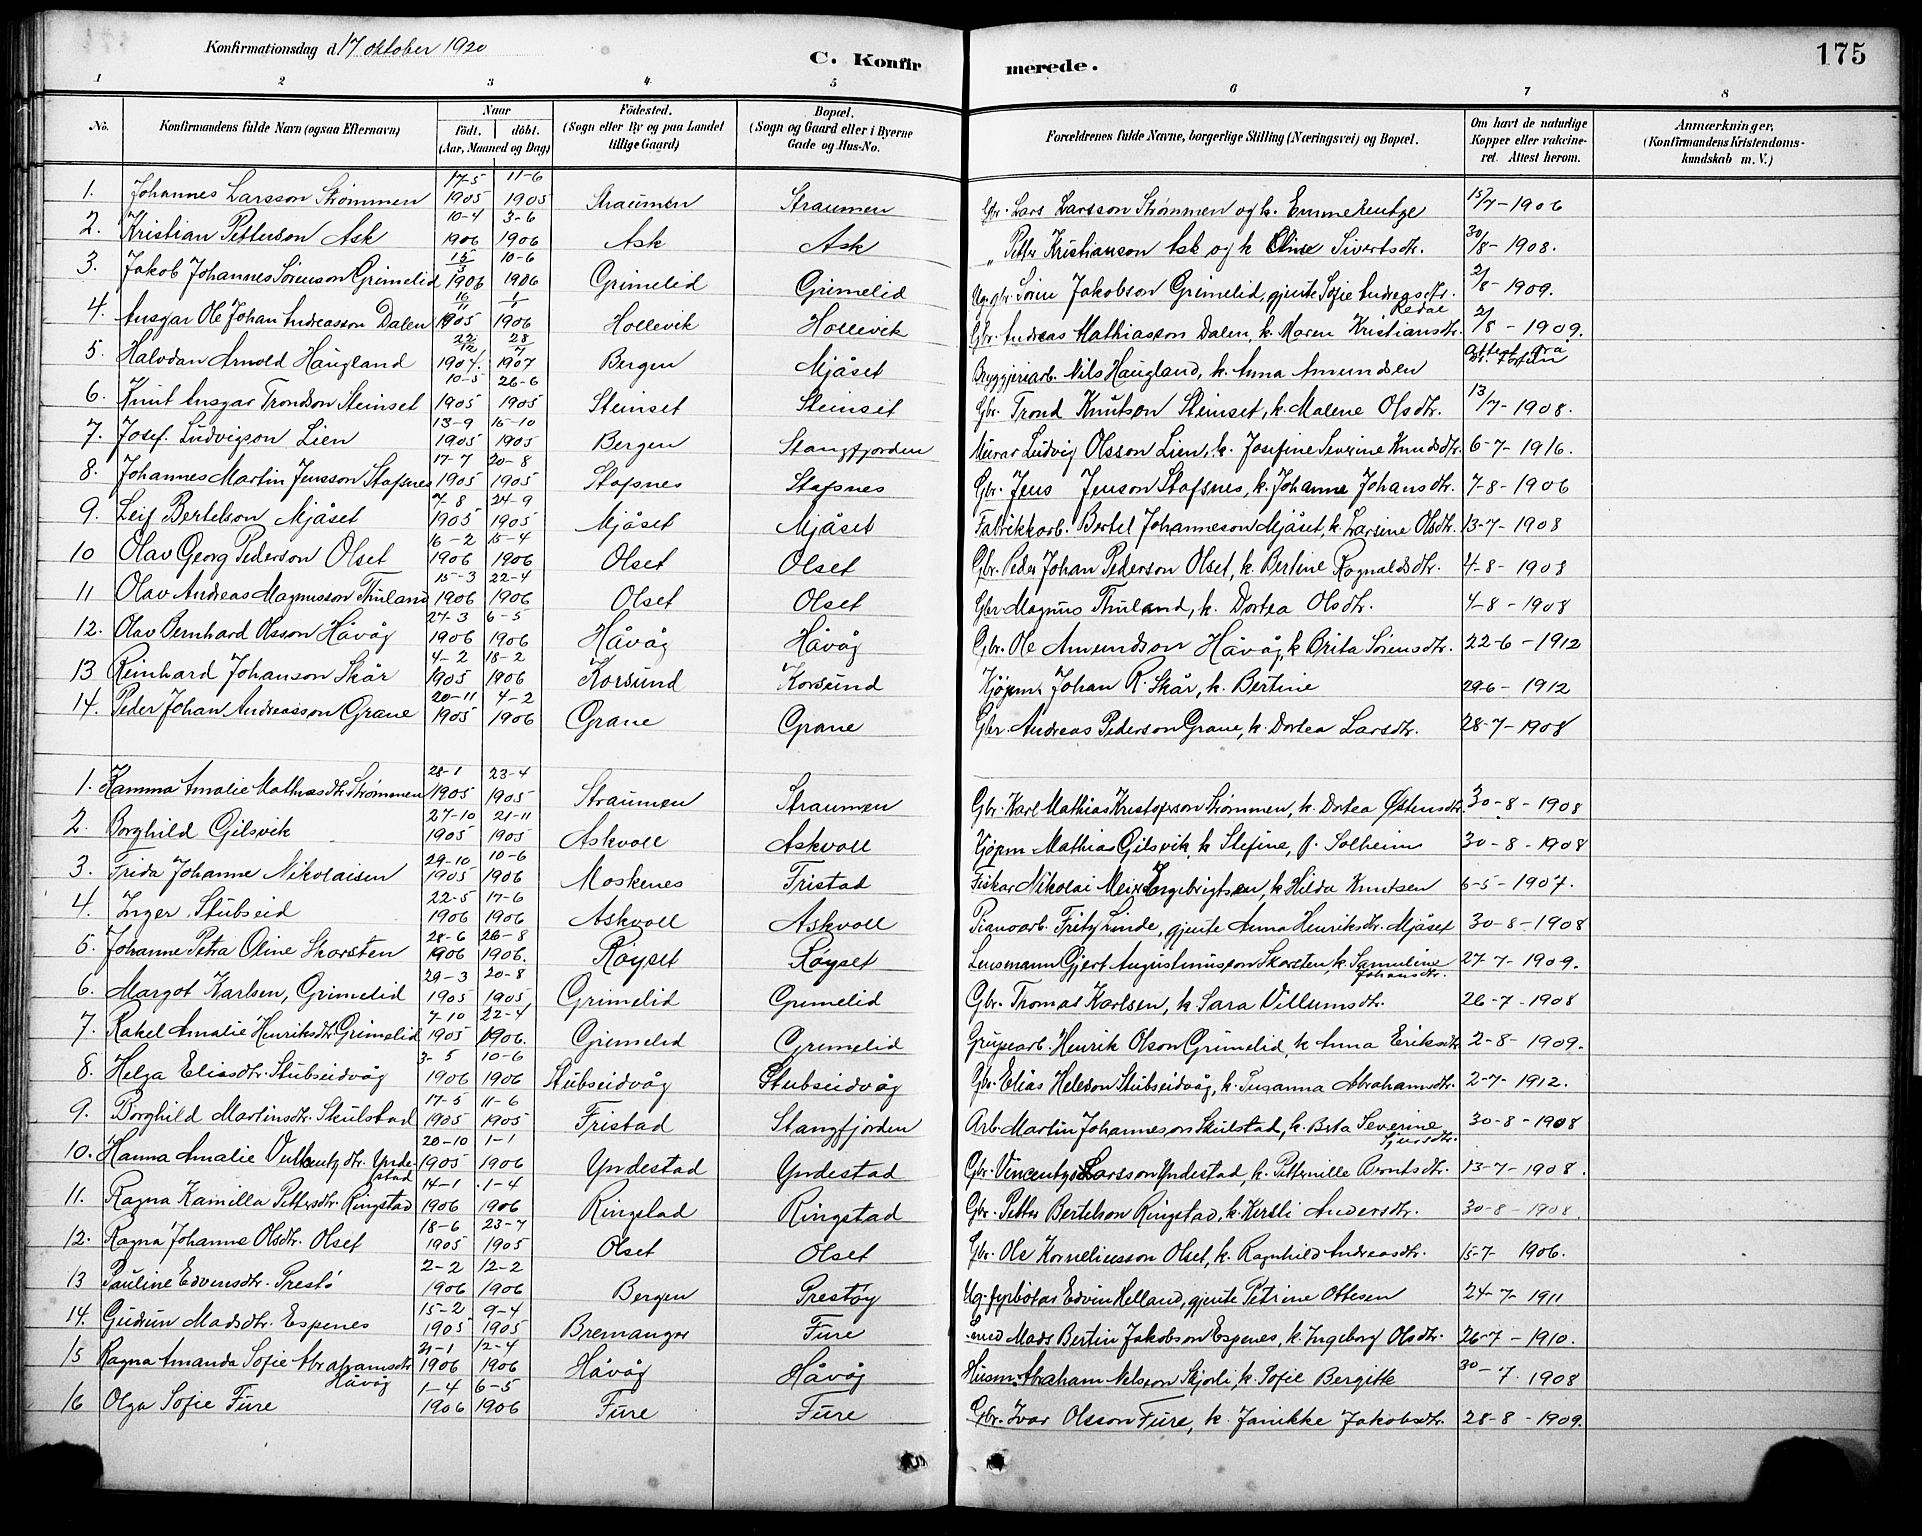 Konfirmationsdag d. 17 oktober 1920
C. Konfirmerede.
175
1 2 3 4 5 6 7 8
No.
Konfirmandens fulde Navn (ogsaa Efternavn)
Naar
födt. döbt.
(Aar, Maaned og Dag)
Födested.
(Sogn eller By og paa Landet
tillige Gaard)
Bopæl.
(Sogn og Gaard eller i Byerne
Gade og Hus-No.
Forældrenes fulde Navne, borgerlige Stilling (Næringsvei) og Bopæl.
Om havt de naturlige
Kopper eller vakcine-
ret. Attest herom.
Anmærkninger,
(Konfirmandens Kristendoms-
kundskab m. V.)
1. Johannes Larsson Strømmen 17-5 1905 11-6 1905 Straumen Straumen Gbr. Lars Larsson Strømmen og k. Emmerentze 15/7-1906
2. Kristian Petterson Ask 10-4 1906 3-6 1906 Ask Ask " Petter Kristianson Ask og k. Oline Sivertsdtr. 30/8-1908.
3. Jakob Johannes Sörenson Grimelid 15/3 1906 10-6 1906 Grimelid Grimelid Ug. gbr. Sörin Jakobson Grimelid, gjente Sofie Andreasdtr. Redal 2/8-1909.
4. Ansgar Ole Johan Andreasson Dalen 16/11 1905 1/1 1906 Hollevik Hollevik Gbr. Andreas Mathiasson Dalen, k. Maren Kristiansdtr. 2/8-1909.
5. Halvdan Arnold Haugland 22/12 1904. 28/7 1907 Bergen Mjåset Bryggjeriarb. Nils Haugland, k. Anna Amundsen attest frå
6. Knut Ansgar Trondson Steinset 10-5 1905 26-6 1905 Steinset Steinset Gbr. Trond Knutson Steinset, k. Malene Olsdtr. 13/7-1908.
7. Josef Ludvigson Lien 13-9 1905 15-10 1905 Bergen Stangfjorden Murar Ludvig Olsson Lien, k. Josefine Severine Knudsdtr. 6-7-1916.
8. Johannes Martin Jensson Stafsnes 17-7 1905 20-8 1905 Stafsnes Stafsnes Gbr. Jens Jenson Stafsnes, k. Johanne Johansdtr. 7-8-1906
9. Leif Bertelson Mjåset 7-8 1905 24-9 1905 Mjåset Mjåset Fabrikkarb. Bertel Johanneson Mjåset, k. Larsine Olsdtr. 13-7-1908
10 Olav Georg Pederson Olset 16-2 1906 15-4 1906 Olset Olset Gbr. Peder Johan Pederson Olset, k. Bertine Ragnaldsdtr. 4-8-1908
11 Olav Andreas Magnusson Thuland 15-3 1906 22-4 1906 Olset Olset Gbr. Magnus Thuland, k. Dortea Olsdtr. 4-8-1908
12. Olav Bernhard Olsson Håvåg 27-3 1906 6-5 1906 Håvåg Håvåg Gbr. Ole Amundson Håvåg, k Brita Sörensdtr. 22-6-1912
13 Reinhard Johanson Skår 4-2 1905 18-2 1906 Korsund Korsund Kjöpm. Johan R. Skår, k. Bertine 29-6-1912
14. Peder Johan Andreasson Grane 20-11 1905 4-2 1906 Grane Grane Gbr. Andreas Pederson Grane, k. Dortea Larsdtr. 28-7-1908
1. Kamma Amalie Mathiasdtr. Strømmen 28-1 1905 23-4 1905 Straumen Straumen Gbr. Karl Mathias Kristoferson Strømmen, k. Dortea Østensdtr. 30-8-1908
2. Borghild Gilsvik 27-10 1905 21-11 1905 Askvoll Askvoll Kjöpm Mathias Gilsvik, k Stefine, f. Solheim 30-8-1908
3. Frida Johanne Nikolaisen 29-10 1905 10-6 1906 Moskenes Fristad Fiskar Nikolai Meier Engebrigtsen, k Hilda Knutsen 6-5-1907.
4. Inger Stubseid 22-5 1906 17-6 1906 Askvoll Askvoll Pianoarb. Fritz Linde, gjente Anna Henriksdtr. Mjåset 30-8-1908
5. Johanne Petra Oline Skorsten 28-6 1906 26-8 1906. Røyset Røyset Lensmann Gjert Augustinusson Skorsten, k. Samuline Johansdtr. 27-7-1909.
6. Margot Karlsen, Grimelid 29-3 1905 20-8 1905 Grimelid Grimelid Gbr. Thomas Karlsen, k Sara Villumsdtr. 26-7-1908
7. Rakel Amalie Henriksdtr. Grimelid 7-10 1905 22-4 1906. Grimelid Grimelid Gruvearb. Henrik Olson Grimelid, k Anna Eriksdtr. 2-8-1909.
8. Helga Eliasdtr. Stubseidvåg 3-5 1906 10-6 1906 Stubseidvåg Stubseidvåg Gbr. Elias Heleson Stubseidvåg, k. Susanna Abrahamsdtr. 2-7-1912.
9. Borghild Martinsdtr. Skulstad 17-5 1905 11-6 1905 Fristad Stangfjorden Arb. Martin Johanneson Skulstad, k. Brita Severine Sjursdtr. 30-8-1908
10. Hanna Amalie Yndestad 20-10 1905 1-1 1906 Yndestad Yndestad Gbr. Vincentz Larsson Yndestad, k. Petternille Arntsdtr. 13-7-1908.
11. Ragna Kamilla Pettersdtr. Ringstad 14-1 1906 1-4 1906 Ringstad Ringstad Gbr. Petter Bertelson Ringstad, k. Kersti Andersdtr. 30-8-1908.
12. Ragna Johanne Olsdtr. Olset 18-6 1905 23-7 1905 Olset Olset Gbr. Ole Korneliusson Olset, k. Ragnhild Andreasdtr. 15-7 1906.
13 Pauline Edvinsdtr. Prestö 2-2 1906 12-2 1906 Bergen Prestøy Ug. fyrbötar Edvin Helland, gjente Petrine Ottesen 24-7-1911
14. Gudrun Madsdtr. Espenes 15-2 1905 9-4 1905 Bremanger Fure Smed Mads Bertin Jakobson Espenes, k. Ingeborg Olsdtr. 26-7-1910.
15 Ragna Amanda Sofie Abrahamsdtr. Håvåg 21-1 1906 12-4 1906 Håvåg Håvåg Husm. Abraham Nelsson Skjorli, k. Sofie Bergitte 30-7. 1908
16 Olga Sofie Fure 1-4 1906 6-5 1906 Fure Fure Gbr. Ivar Olsson Fure, k. Janikke Jakobsdtr. 28-8-1909.